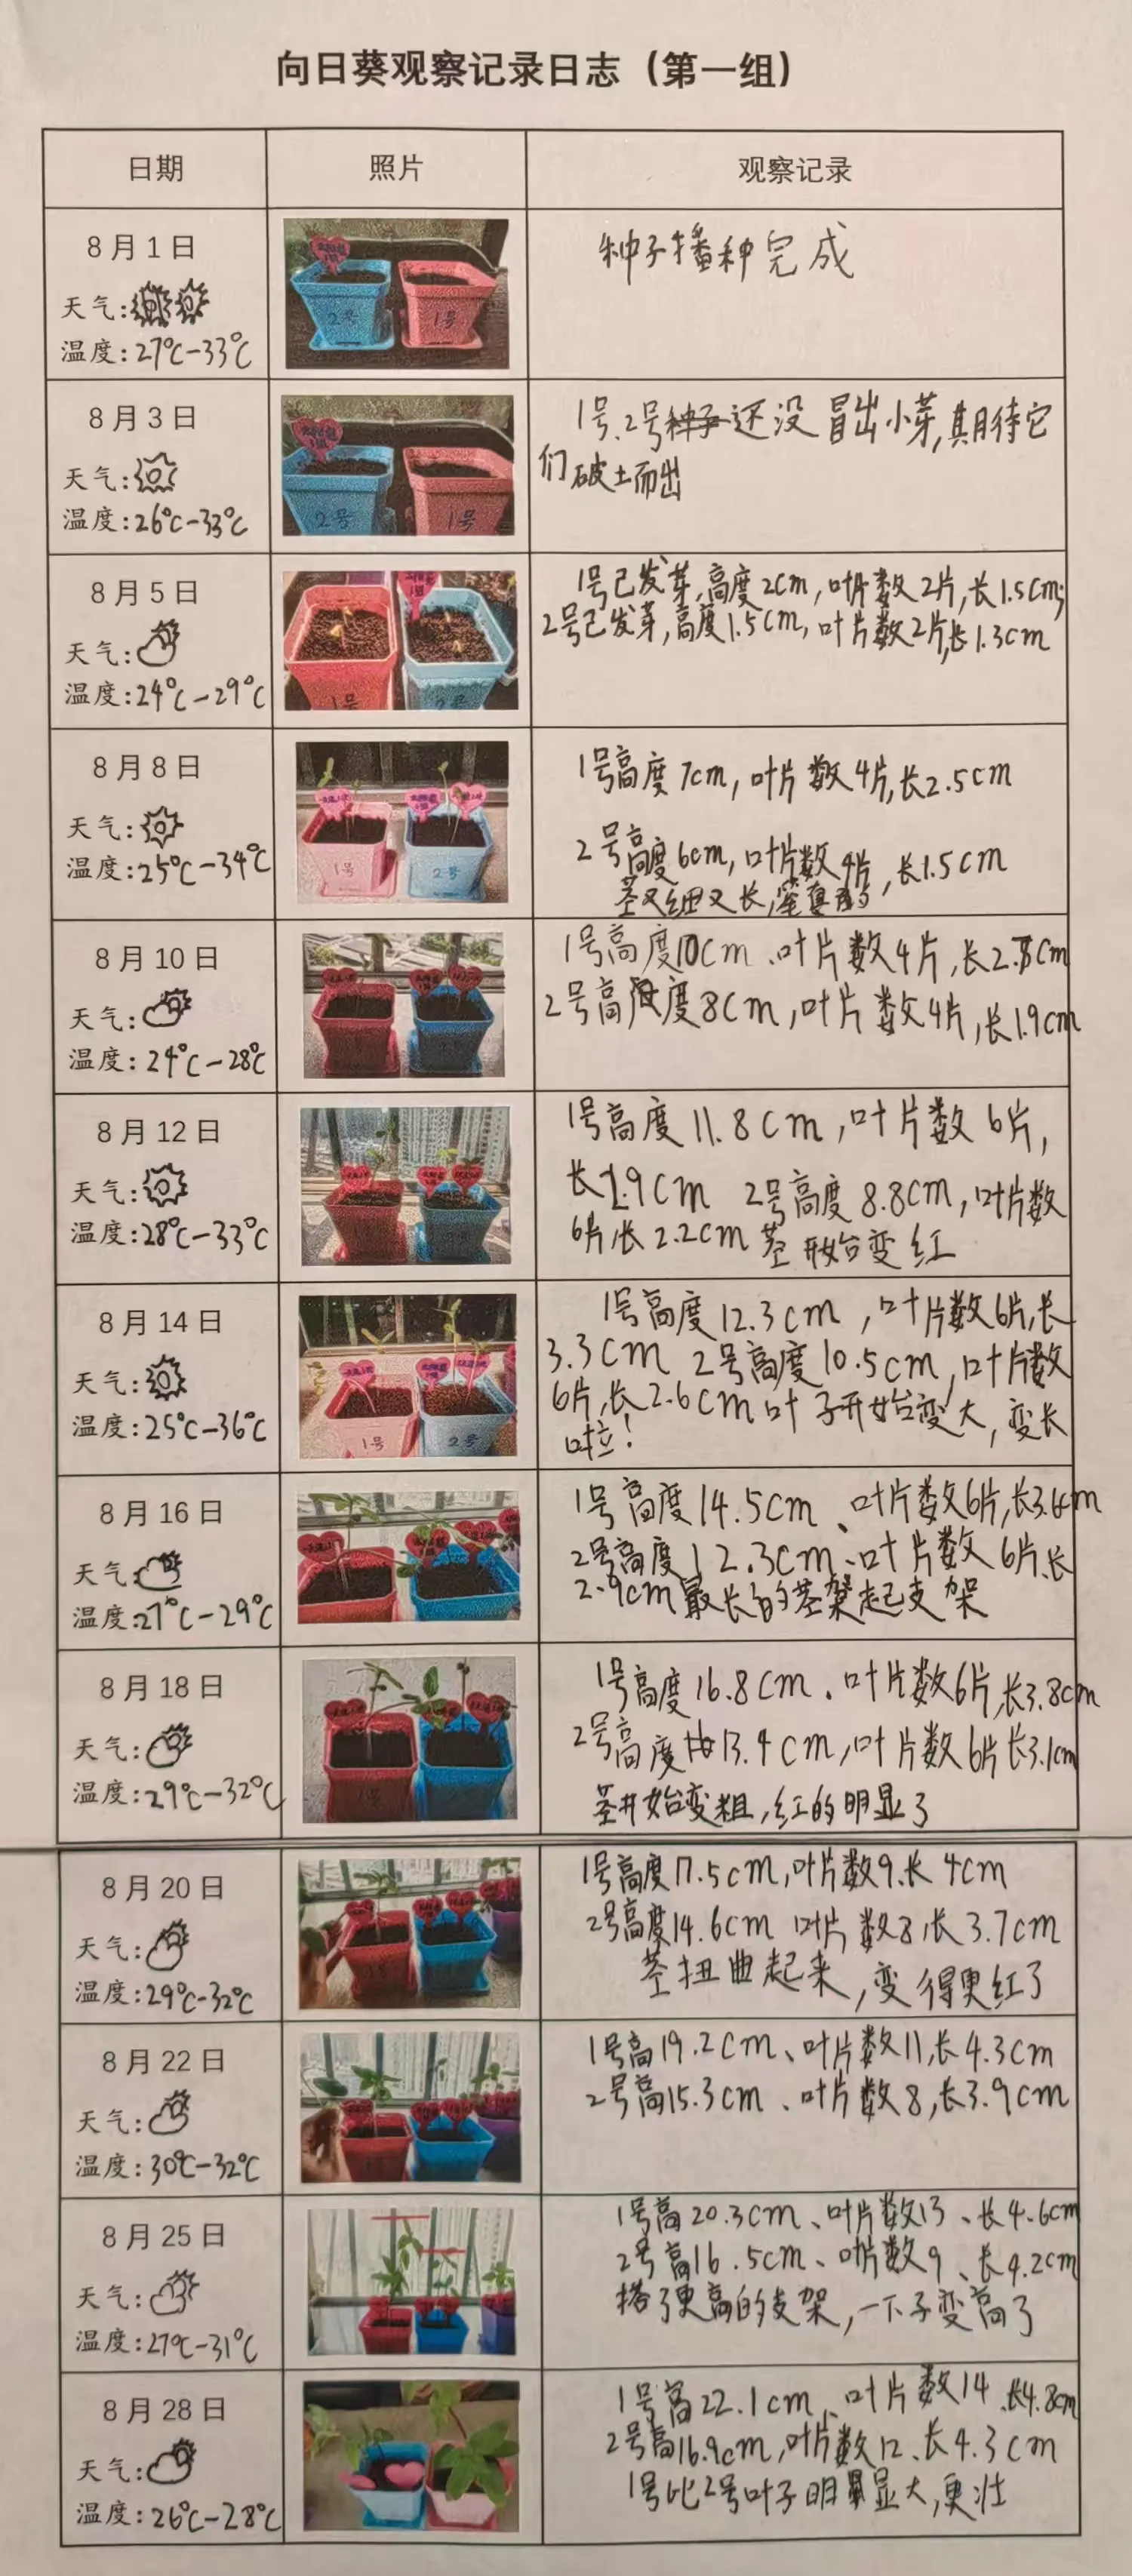 向日葵观察记录日志（第一组）
日期
照片
观察记录
8月1日
天气:
温度:27℃-33℃
2号
1号
种子播种完成
8月3日
天气:
温度:26℃-33℃
2号
1号
1号.2号种子还没冒出小芽,期待它
们破土而出
8月5日
天气:
温度:24℃-29℃
1号
2号
1号已发芽,高度2cm,叶片数2片,长1.5cm;
2号已发芽,高度1.5cm,叶片数2片,长1.3cm
8月8日
天气:
温度:25℃-34℃
1号
2号
1号高度7cm,叶片数4片,长2.5cm
2号高度6cm,叶片数4片,长1.5cm
茎又细又长,
8月10日
天气:
温度:24℃-28℃
1号高度10cm、叶片数4片,长2.8cm
2号高度8cm,叶片数4片,长1.9cm
8月12日
天气:
温度:28℃-33℃
1号高度11.8cm,叶片数6片,
长2.9cm 2号高度8.8cm,叶片数
6片,长2.2cm 茎开始变红
8月14日
天气:
温度:25℃-36℃
1号
2号
1号高度12.3cm,叶片数6片,长
3.3cm 2号高度10.5cm,叶片数
6片,长2.6cm叶子开始变大,变长
啦!
8月16日
天气:
温度:27℃-29℃
1号高度14.5cm、叶片数6片,长3.6cm
2号高度12.3cm、叶片数6片、长
2.9cm最长的茎架起支架
8月18日
天气:
温度:29℃-32℃
1号
2号
1号高度16.8cm、叶片数6片,长3.8cm
2号高度13.4cm,叶片数6片长3.1cm
茎开始变粗,红的明显了
8月20日
天气:
温度:29℃-32℃
1号高度17.5cm,叶片数9.长4cm
2号高度14.6cm 叶片数8,长3.7cm
茎扭曲起来,变得更红了
8月22日
天气:
温度:30℃-32℃
1号高19.2cm、叶片数11,长4.3cm
2号高15.3cm、叶片数8,长3.9cm
8月25日
天气:
温度:27℃-31℃
1号高20.3cm、叶片数13、长4.6cm
2号高16.5cm、叶片数9、长4.2cm
搭了更高的支架,一下子变高了
8月28日
天气:
温度:26℃-28℃
1号高22.1cm、叶片数14.长4.8cm
2号高16.9cm,叶片数12、长4.3cm
1号比2号叶子明显大,更壮